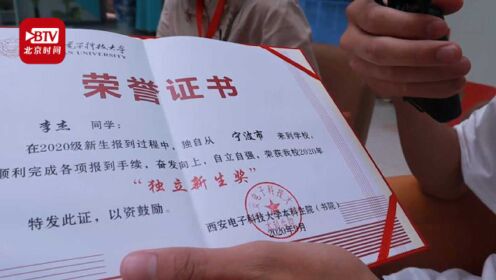 BTV
北京时间
电子科技大学
UNIVERSITY
荣誉证书
李杰 同学：
在2020级新生报到过程中，独自从 宁波市 来到学校，
顺利完成各项报到手续，奋发向上，自立自强，荣获我校2020年
“独立新生奖”
特发此证，以资鼓励。
西安电子科技大学本科生院（书院）
2020年9月